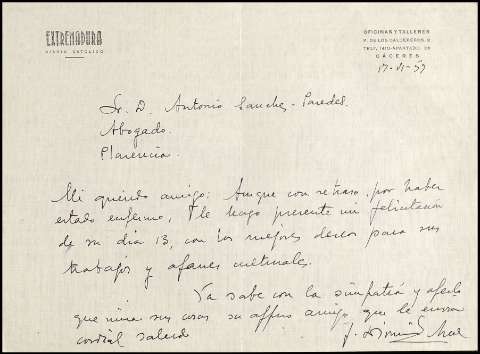 EXTREMADURA
DIARIO CATOLICO
OFICINAS Y TALLERES
P. DE LOS CALDEREROS, 2
TELF. 1410-APARTADO, 28
CÁCERES
17-VI-59
Sr. D. Antonio Sanchez-Paredes.
Abogado.
Plasencia.
Mi querido amigo: Aunque con retraso, por haber
estado enfermo, le hago presente mi felicitación
de su día 13, con los mejores deseos para sus
trabajos y afanes culturales.
Ya sabe con la simpatía y afecto
que mira sus cosas su affmo amigo que le envia
cordial saludo